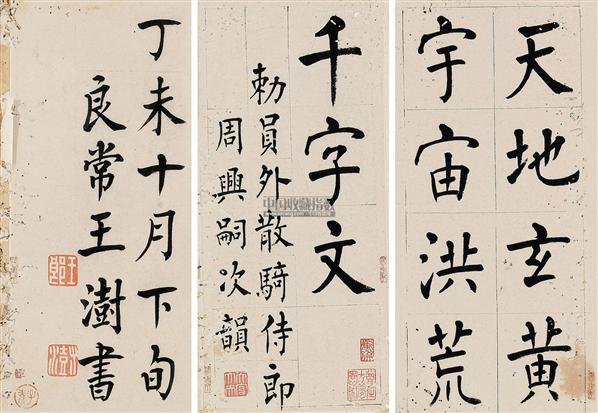 天地玄黄
宇宙洪荒
千字文
勅員外散騎侍郎
周興嗣次韻
丁未十月下旬
良常王澍書
中国收藏指数